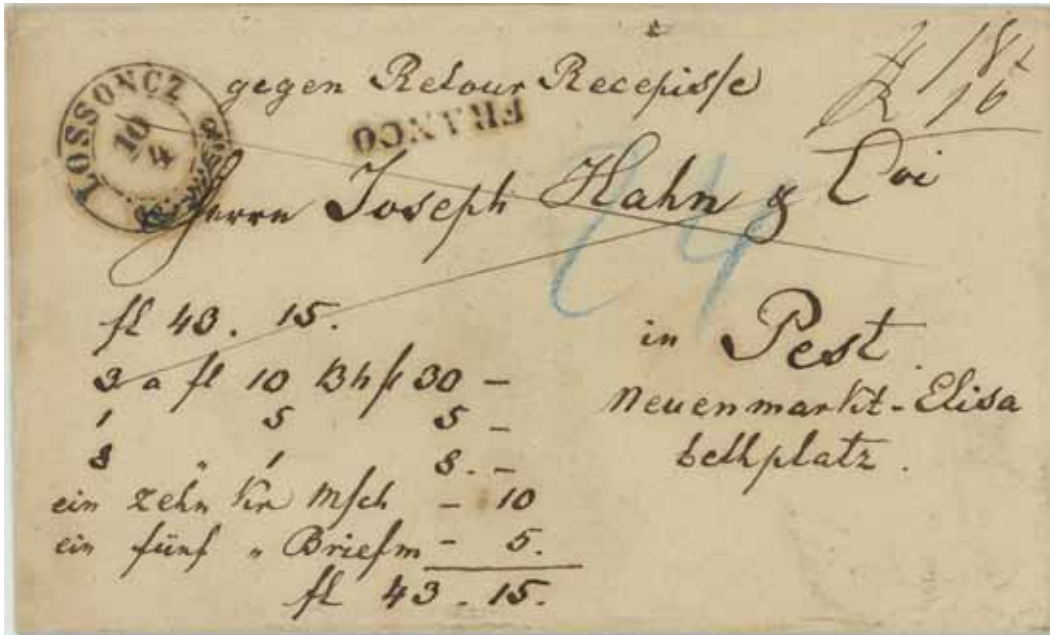 gegen Retour Recepisse
LOSSONCZ
10
4
FRANCO
18
16
Herrn Joseph Hahn & Coi
24
fl 43. 15.
3 a fl 10 fl 30 -
1 5 5 -
8 " 1 8. -
ein zehn Kr - 10
ein fünf " Briefm - 5.
fl 43. 15.
in Pest.
Neuenmarkt-Elisa
bethplatz.